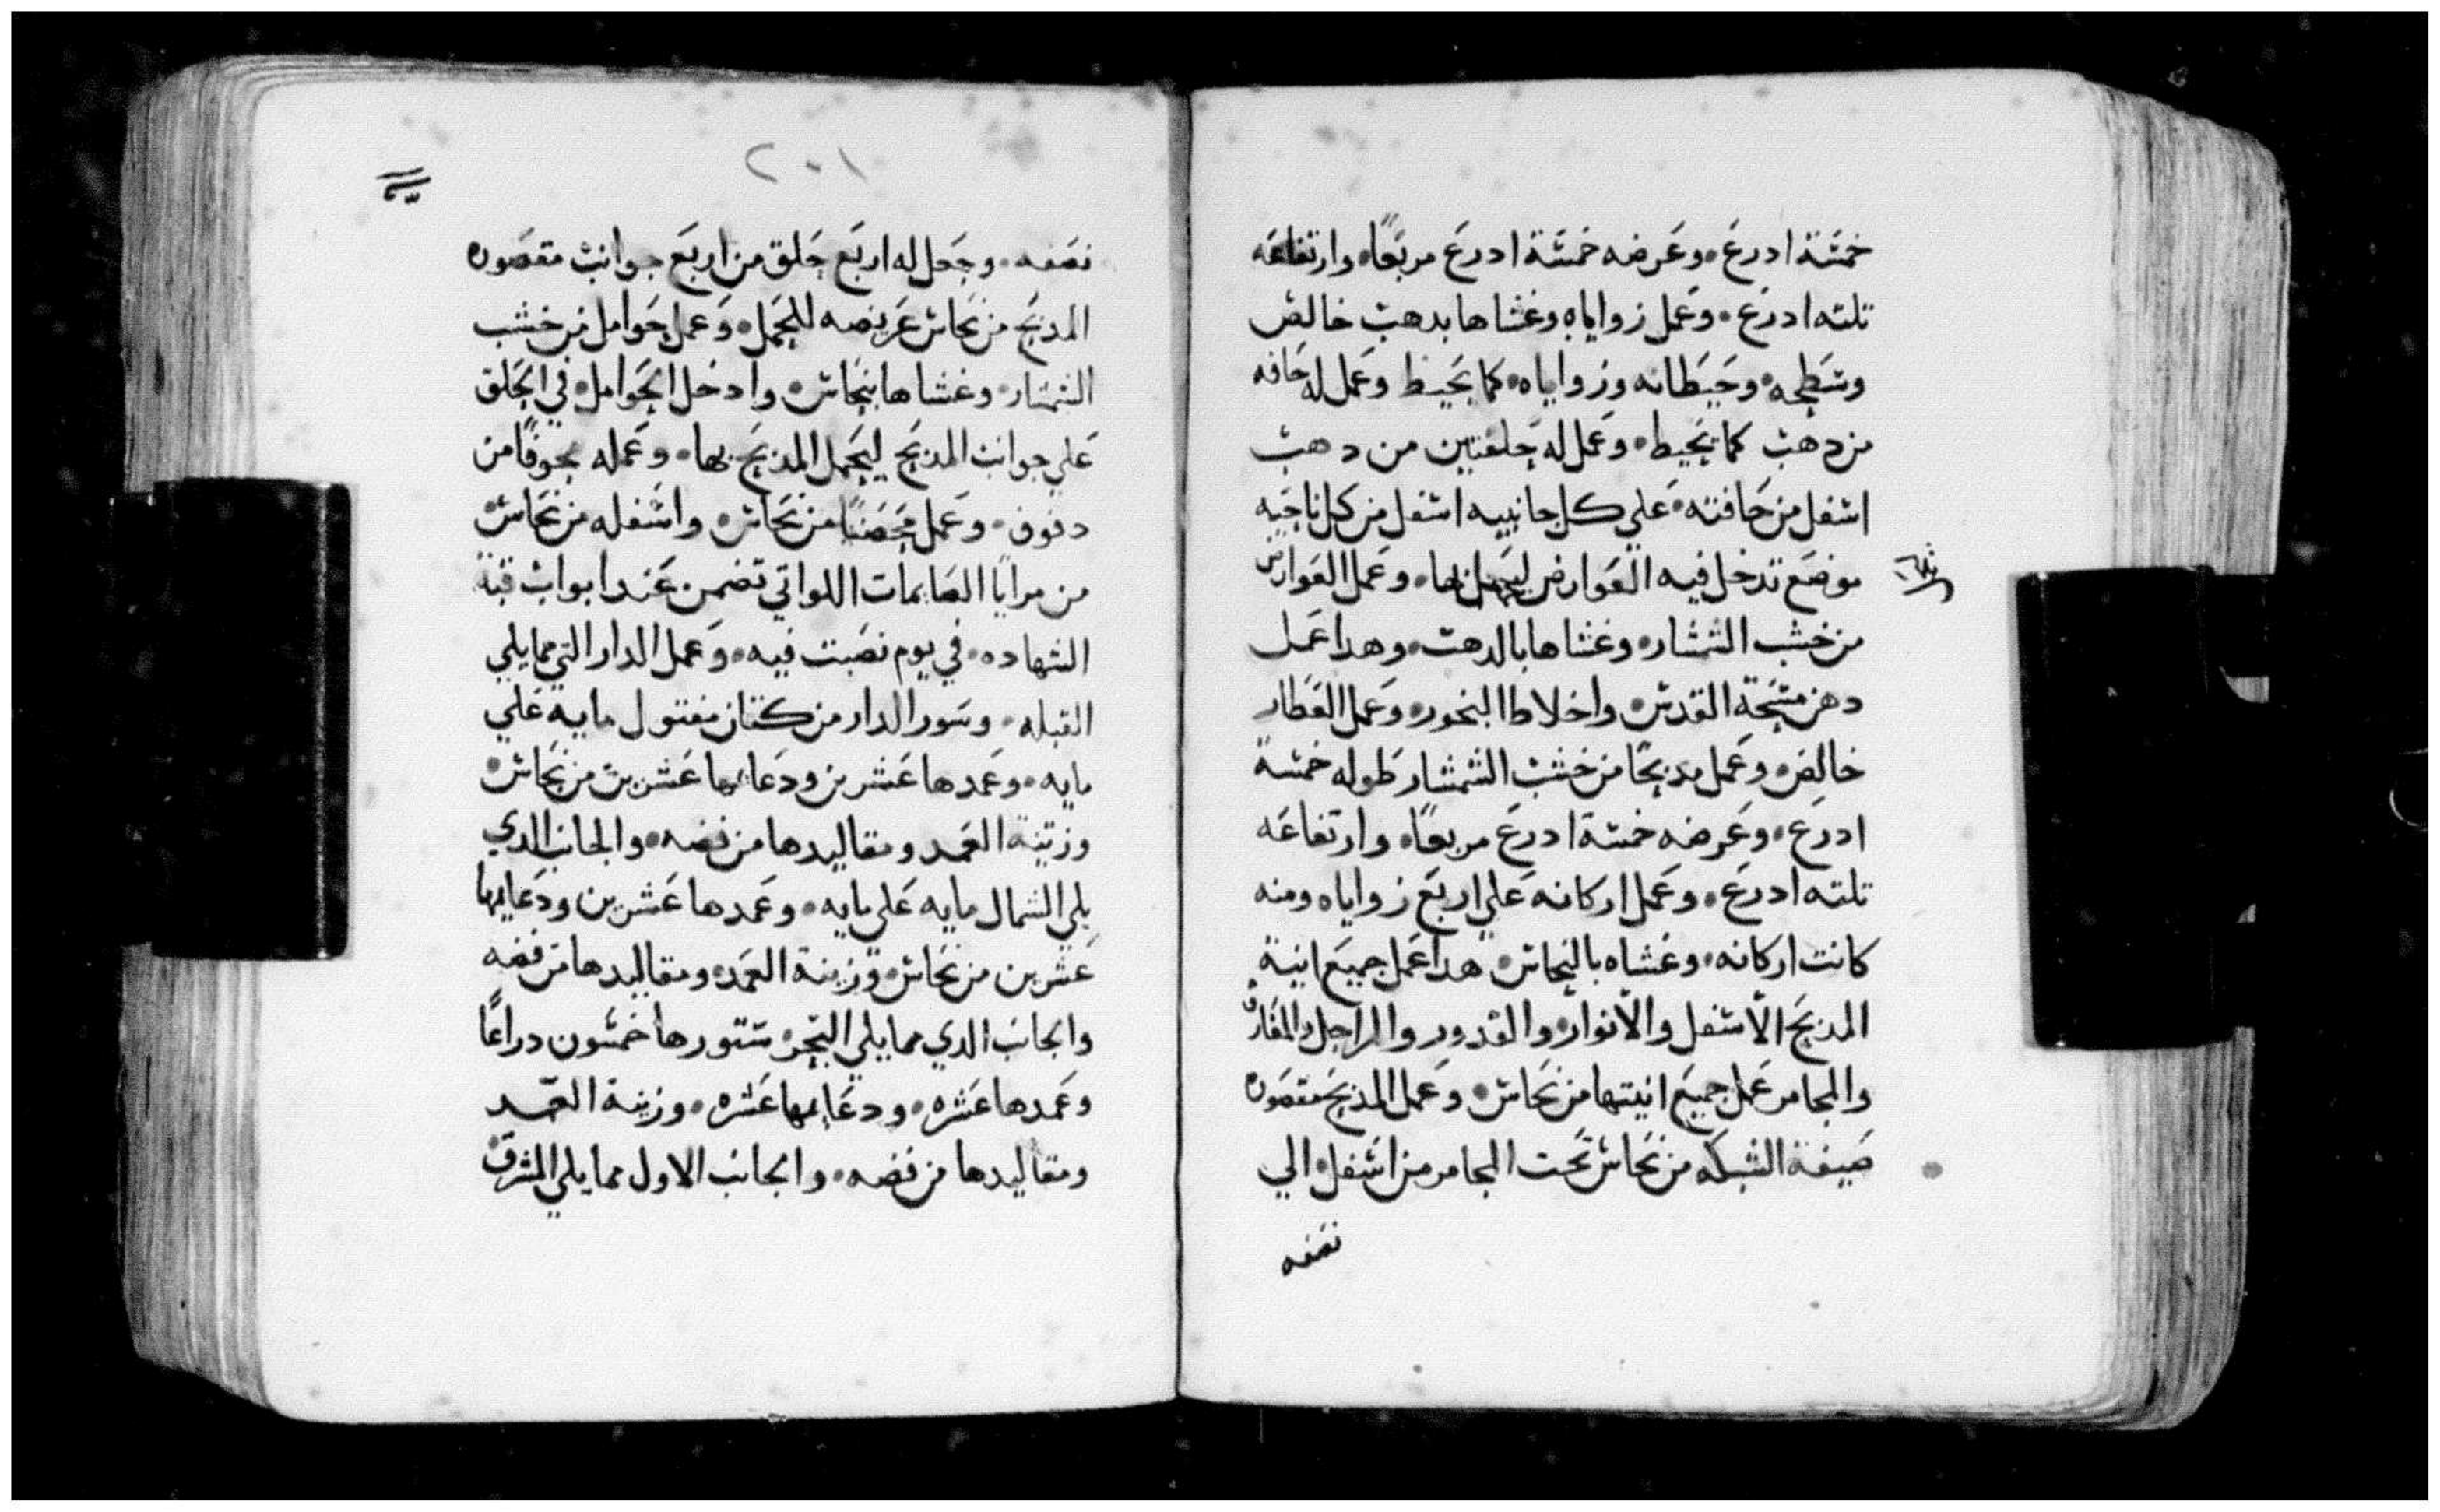 خمسة ادرع • وعرضه خمسة ادرع مربعًا • وارتفاعه
تلته ادرع • وعمل زواياه وغشاها بدهب خالص
وسطحه • وحيطانه وزواياه • كما يحيط وعمل له حافه
من دهب كما يحيط • وعمل له حلقتين من دهب
اسفل من حافته • علي كل جانبيه اسفل من كل ناحيه
موضع تدخل فيه العوارض ليحمل بها • وعمل العوارض
من خشب الشمشار • وغشاها بالدهب • وهدا عمل
دهن مسحة القدس • واخلاط البخور • وعمل العطار
خالص • وعمل مدبحًا من خشب الشمشار طوله خمسة
ادرع • وعرضه خمسة ادرع مربعًا • وارتفاعه
تلته ادرع • وعمل اركانه علي اربع زواياه ومنه
كانت اركانه • وغشاه بالنحاس • هدا عمل جميع انية
المدبح الاسفل والانوار • والقدور والمراجل •
والمجامر عمل جميع انيتها من نحاس • وعمل المدبح مقصوره
صيغة الشبكه من نحاس تحت المجامر من اسفل • الي
نصفه
٢٠١
نصفه • وجعل له اربع حلق من اربع جوانب مقصوره
المدبح من نحاس عريضه للحمل • وعمل حوامل من خشب
الشمشار • وغشاها بنحاس • وادخل الحوامل • في الحلق
علي جوانب المدبح ليحمل المدبح بها • وعمله مجوفًا من
دفوف • وعمل محضنًا من نحاس • واسفله من نحاس •
من مرايا الصايمات اللواتي تضمن عند ابواب قبة
الشهاده • في يوم نصبت فيه • وعمل الدار التي مما يلي
القبله • وسور الدار من كتان مفتول مايه علي
مايه • وعمدها عشرين ودعايمها عشرين من نحاس •
وزينة العمد ومقاليدها من فضه • والجانب الدي
يلي الشمال مايه علي مايه • وعمدها عشرين ودعايمها
عشرين من نحاس • وزينة العمد • ومقاليدها من فضه
والجانب الدي مما يلي البحر • ستورها خمسون دراعًا
وعمدها عشره • ودعايمها عشره • وزينة العمد
ومقاليدها من فضه • والجانب الاول مما يلي المشرق